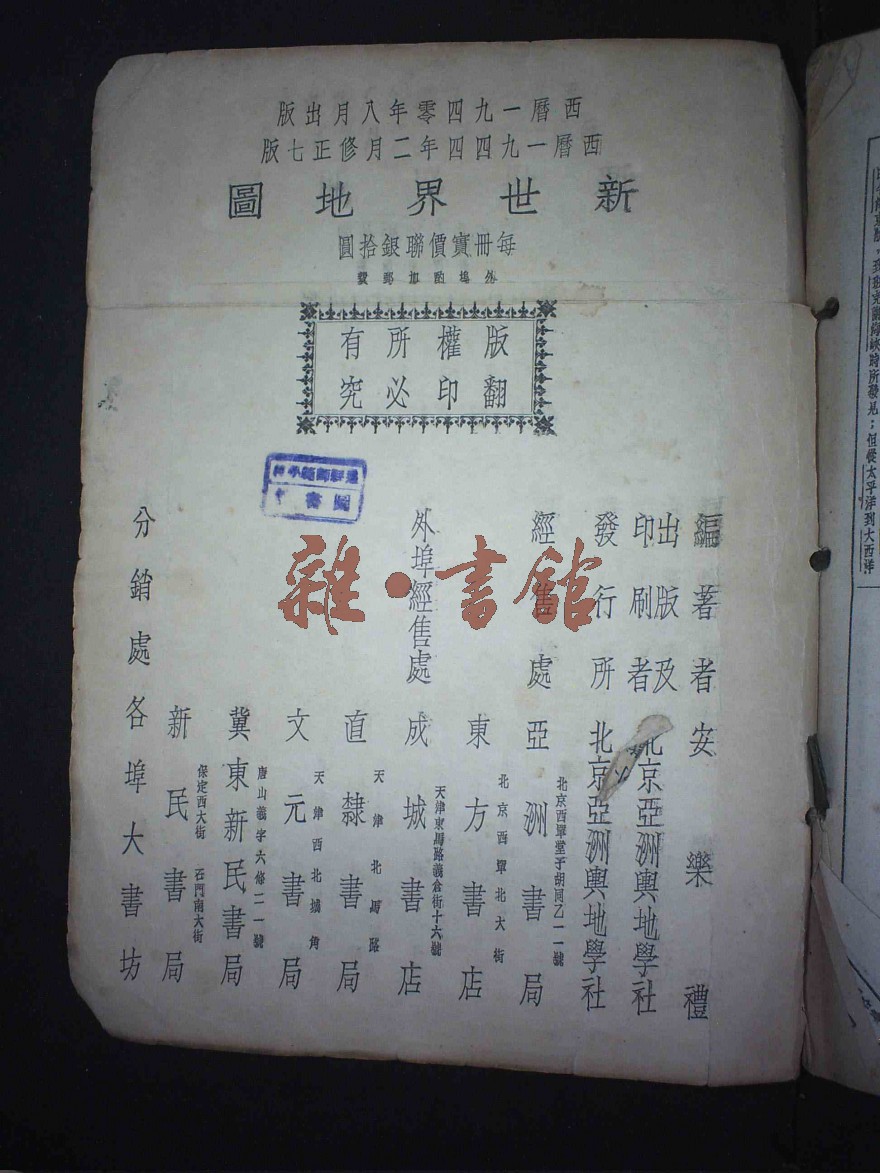 西曆一九四零年八月出版
西曆一九四四年二月修正七版
新世界地圖
每冊實價聯銀拾圓
外埠酌加郵費
版權所有
翻印必究
編著者安樂禮
出版及
印刷者北京亞洲輿地學社
發行所北京亞洲輿地學社
經售處亞洲書局
北京西單堂子胡同乙一一號
東方書店
北京西單北大街
外埠經售處成城書店
天津東馬路義倉街十六號
直隸書局
天津北馬路
文元書局
天津西北城角
冀東新民書局
唐山義字六條二一號
新民書局
保定西大街 石門南大街
分銷處各埠大書坊
圖書
雜·書館
時所發見；但從太平洋到大西洋